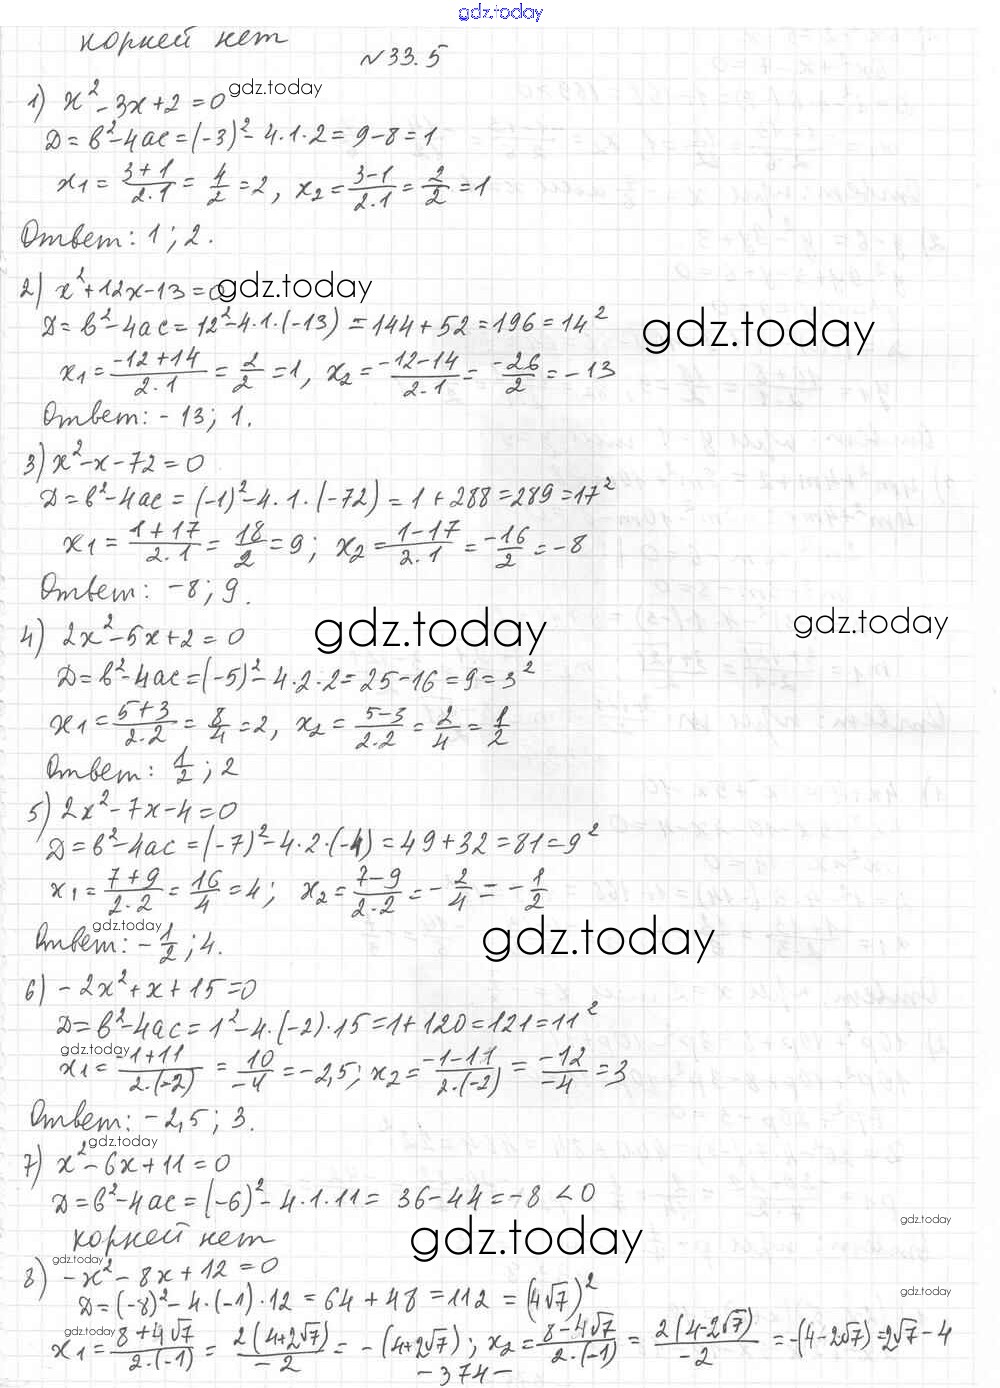 gdz.today
корней нет
№33.5
1) x² - 3x + 2 = 0 gdz.today
Д = b² - 4ac = (-3)² - 4·1·2 = 9 - 8 = 1
x₁ = (3+1)/(2·1) = 4/2 = 2, x₂ = (3-1)/(2·1) = 2/2 = 1
Ответ: 1; 2.
2) x² + 12x - 13 = 0 gdz.today
Д = b² - 4ac = 12² - 4·1·(-13) = 144 + 52 = 196 = 14² gdz.today
x₁ = (-12+14)/(2·1) = 2/2 = 1, x₂ = (-12-14)/(2·1) = -26/2 = -13
Ответ: -13; 1.
3) x² - x - 72 = 0
Д = b² - 4ac = (-1)² - 4·1·(-72) = 1 + 288 = 289 = 17²
x₁ = (1+17)/(2·1) = 18/2 = 9; x₂ = (1-17)/(2·1) = -16/2 = -8
Ответ: -8; 9.
4) 2x² - 5x + 2 = 0 gdz.today gdz.today
Д = b² - 4ac = (-5)² - 4·2·2 = 25 - 16 = 9 = 3²
x₁ = (5+3)/(2·2) = 8/4 = 2, x₂ = (5-3)/(2·2) = 2/4 = 1/2
Ответ: 1/2; 2
5) 2x² - 7x - 4 = 0
Д = b² - 4ac = (-7)² - 4·2·(-4) = 49 + 32 = 81 = 9²
x₁ = (7+9)/(2·2) = 16/4 = 4; x₂ = (7-9)/(2·2) = -2/4 = -1/2
gdz.today
Ответ: -1/2; 4. gdz.today
6) -2x² + x + 15 = 0
Д = b² - 4ac = 1² - 4·(-2)·15 = 1 + 120 = 121 = 11²
gdz.today
x₁ = (-1+11)/(2·(-2)) = 10/-4 = -2,5; x₂ = (-1-11)/(2·(-2)) = -12/-4 = 3
Ответ: -2,5; 3.
gdz.today
7) x² - 6x + 11 = 0
Д = b² - 4ac = (-6)² - 4·1·11 = 36 - 44 = -8 < 0
gdz.today
корней нет gdz.today
gdz.today
8) -x² - 8x + 12 = 0
Д = (-8)² - 4·(-1)·12 = 64 + 48 = 112 = (4√7)² gdz.today
gdz.today
x₁ = (8+4√7)/(2·(-1)) = 2(4+2√7)/-2 = -(4+2√7); x₂ = (8-4√7)/(2·(-1)) = 2(4-2√7)/-2 = -(4-2√7) = 2√7 - 4
-374-